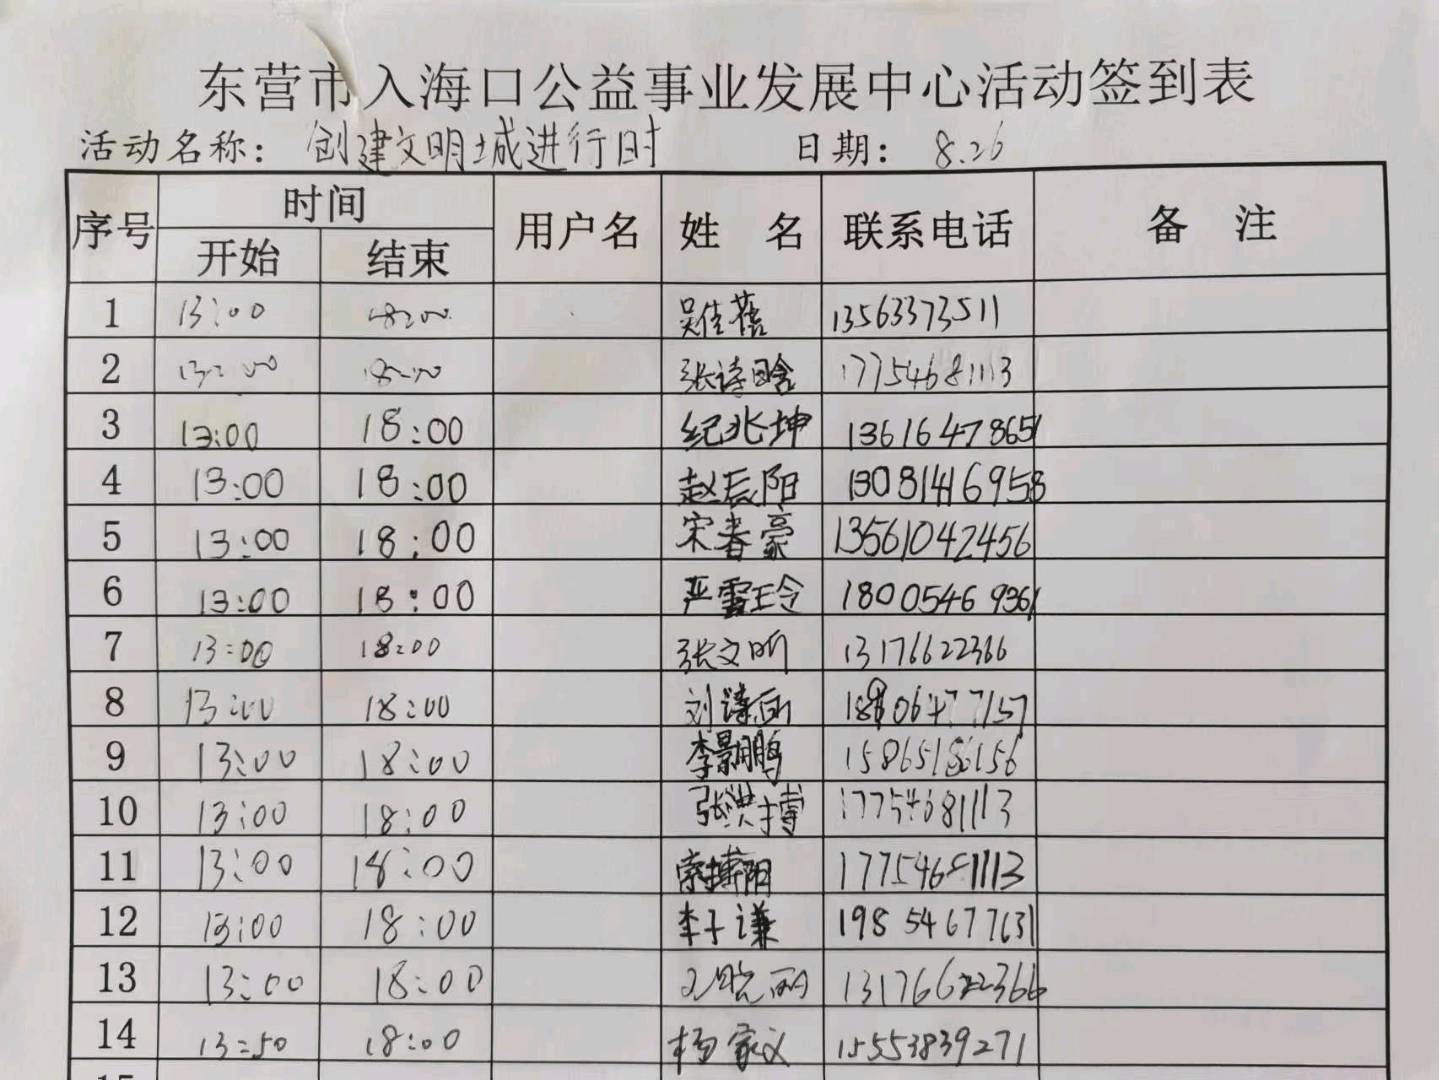 东营市入海口公益事业发展中心活动签到表
活动名称： 创建文明城进行时 日期： 8.26
序号 时间 用户名 姓 名 联系电话 备 注
开始 结束
1 13:00 18:00 吴佳蓓 13563373511
2 13:00 18:00 张诗晗 17754681113
3 13:00 18:00 纪兆坤 13616478651
4 13:00 18:00 赵辰阳 13081416958
5 13:00 18:00 宋春豪 13561042456
6 13:00 18:00 严雪玲 18005469361
7 13:00 18:00 张文昕 13176622366
8 13:00 18:00 刘诗雨
9 13:00 18:00 李景鹏 15865186156
10 13:00 18:00 张洪搏 17754681113
11 13:00 18:00 17754681113
12 13:00 18:00 李子谦 19854677631
13 13:00 18:00 13176622366
14 13:50 18:00 杨家义 15553839271
15